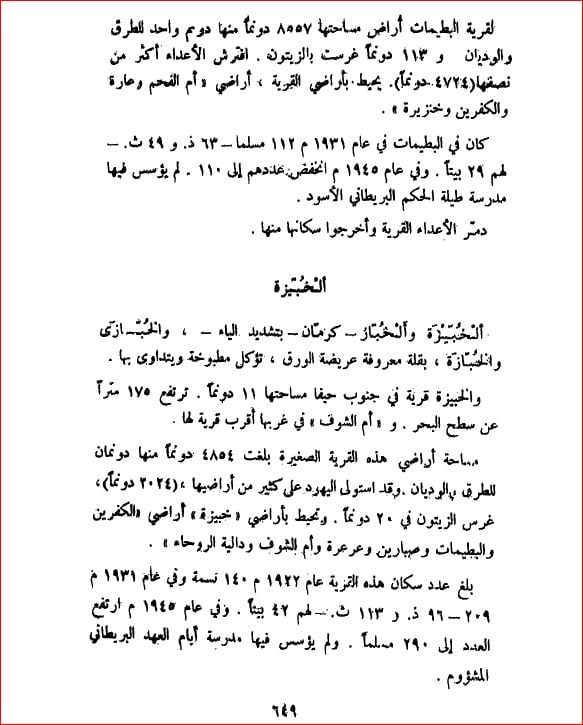 لقرية البطيمات أراضٍ مساحتها ٨٥٥٧ دونماً منها دونم واحد للطرق
والوديان و ١١٣ دونماً غرست بالزيتون . افترش الأعداء أكثر من
نصفها (٤٧٢٤ دونماً). يحيط بأراضي القرية ، أراضي « أم الفحم وعارة
والكفرين وخنزيرة » .
كان في البطيمات في عام ١٩٣١ م ١١٢ مسلما – ٦٣ ذ. و ٤٩ ث. –
لهم ٢٩ بيتاً . وفي عام ١٩٤٥ م انخفض عددهم إلى ١١٠ . لم يؤسس فيها
مدرسة طيلة الحكم البريطاني الأسود .
دمّر الأعداء القرية وأخرجوا سكانها منها .
ألخُبَّيزة
ألخُبَّيْزة وألخُبَّاز – كرمان – بتشديد الياء – ، والخُبَّـازى
والخُبَّازة ، بقلة معروفة عريضة الورق ، تؤكل مطبوخة ويتداوى بها .
والخبيزة قرية في جنوب حيفا مساحتها ١١ دونماً . ترتفع ١٧٥ متراً
عن سطح البحر . و « أم الشوف » في غربها أقرب قرية لها .
مساحة أراضي هذه القرية الصغيرة بلغت ٤٨٥٤ دونماً منها دونمان
للطرق والوديان . وقد استولى اليهود على كثير من أراضيها ، (٢٠٢٤ دونماً)،
غرس الزيتون في ٢٠ دونماً . وتحيط بأراضي « خبيزة » أراضي «الكفرين
والبطيمات وصبارين وعرعرة وأم الشوف ودالية الروحاء » .
بلغ عدد سكان هذه القرية عام ١٩٢٢ م ١٤٠ نسمة وفي عام ١٩٣١ م
٢٠٩ – ٩٦ ذ. و ١١٣ ث. – لهم ٤٢ بيتاً . وفي عام ١٩٤٥ م ارتفع
العدد إلى ٢٩٠ مسلماً . ولم يؤسس فيها مدرسة أيام العهد البريطاني
المشؤوم .
٦٤٩